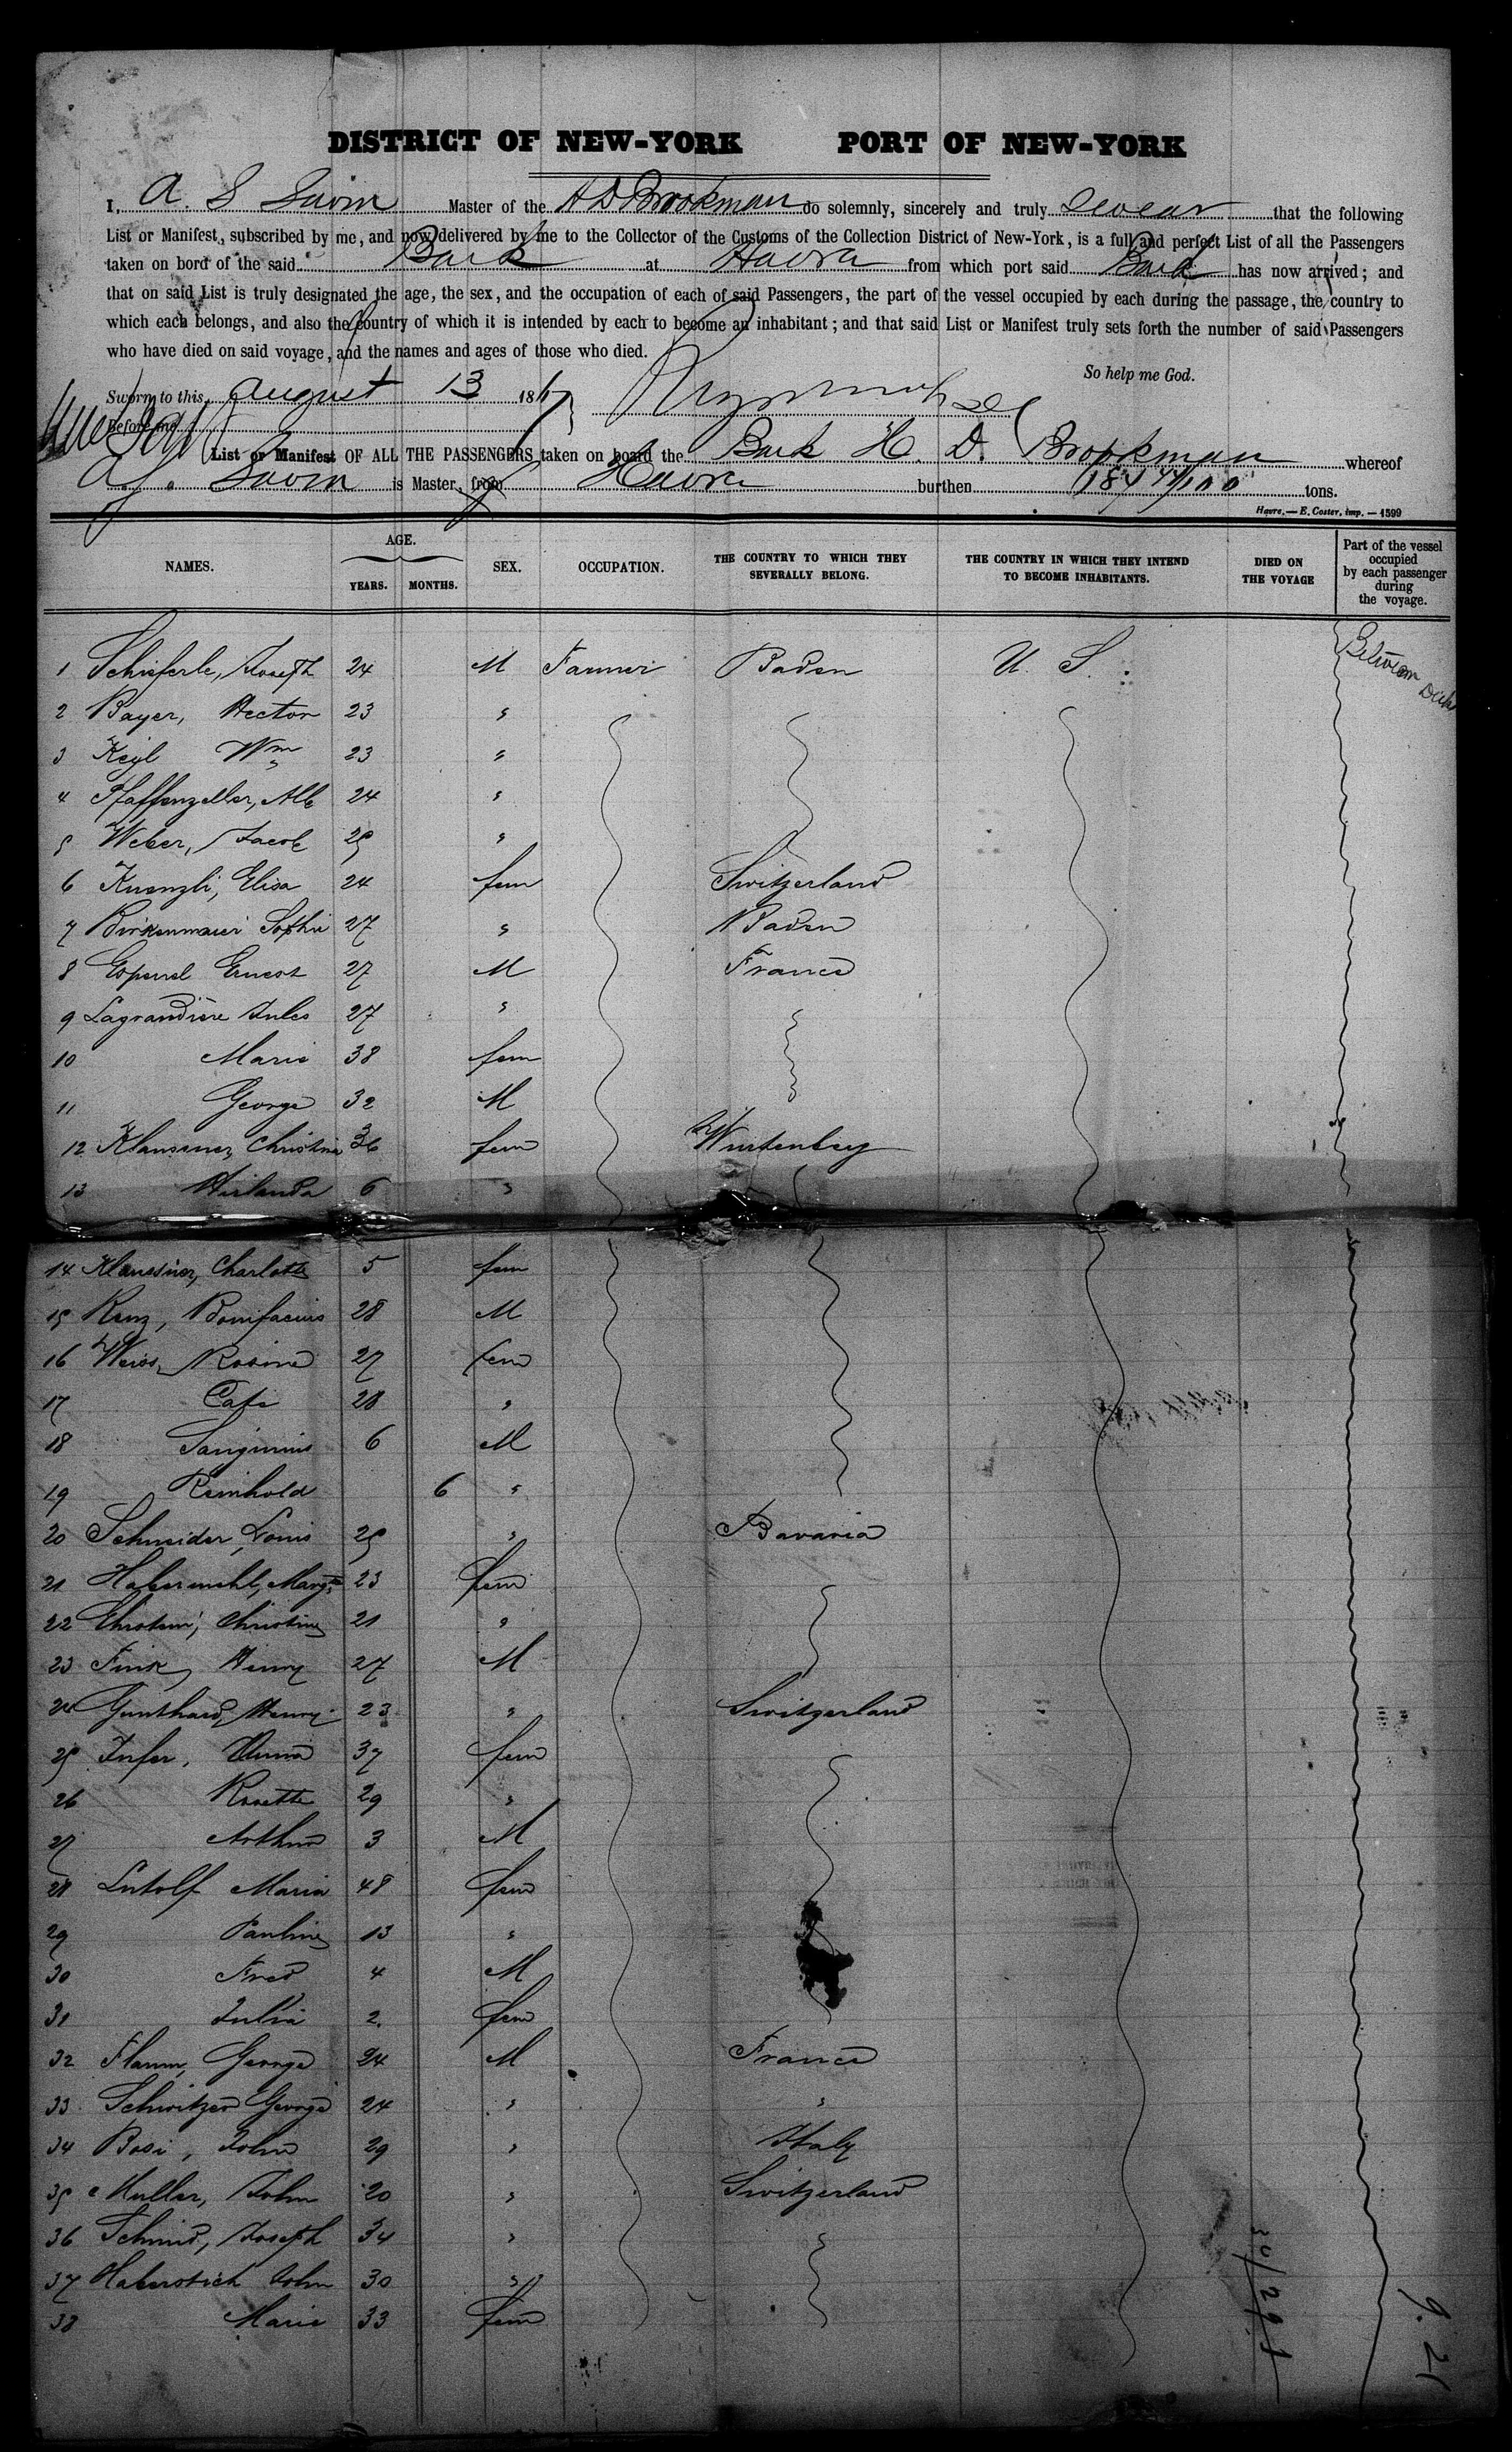 DISTRICT OF NEW-YORK PORT OF NEW-YORK
I, A. S Savin Master of the H D Brookman do solemnly, sincerely and truly swear that the following
List or Manifest, subscribed by me, and now delivered by me to the Collector of the Customs of the Collection District of New-York, is a full and perfect List of all the Passengers
taken on bord of the said Bark at Havre from which port said Bark has now arrived; and
that on said List is truly designated the age, the sex, and the occupation of each of said Passengers, the part of the vessel occupied by each during the passage, the country to
which each belongs, and also the country of which it is intended by each to become an inhabitant; and that said List or Manifest truly sets forth the number of said Passengers
who have died on said voyage, and the names and ages of those who died.
So help me God.
Sworn to this August 13 1867
Before me
List or Manifest OF ALL THE PASSENGERS taken on board the Bark H. D. Brookman whereof
A. S. Savin is Master, from Havre burthen tons.
Havre.— E. Coster, imp. — 1599
NAMES. AGE. YEARS. MONTHS. SEX. OCCUPATION. THE COUNTRY TO WHICH THEY SEVERALLY BELONG. THE COUNTRY IN WHICH THEY INTEND TO BECOME INHABITANTS. DIED ON THE VOYAGE Part of the vessel occupied by each passenger during the voyage.
1 Schieferle, Joseph 24 M Farmer Baden U. S. Between Decks
2 Bayer, Hector 23 "
3 Keyl Wm 23 "
4 Pfaffenzeller, Alb 24 "
5 Weber, Jacob 25 "
6 Kuenzli, Elisa 24 fem Switzerland
7 Birkenmaier Sophie 27 " Baden
8 Ernest 27 M France
9 Lagrandiere Jules 27 "
10 Marie 38 fem
11 George 32 M
12 Klaussner, Christina 36 fem Wurtenberg
13 Hirlanda 6 "
14 Klaussner, Charlotte 5 fem
15 Renz, Bonifacius 28 M
16 Weiss, Rosine 27 fem
17 Cate 28 "
18 6 M
19 Reinhold 6 "
20 Schneider, Louis 25 " Bavaria
21 Habermehl, Margte 23 fem
22 Christine 21 "
23 Fink, Henry 27 M
24 Gunthard, Henry 23 " Switzerland
25 Infer, Anna 37 fem
26 Rosette 29 "
27 Arthur 3 M
28 Lutolf Maria 48 fem
29 Pauline 13 "
30 Fred 4 M
31 Julia 2 fem
32 Flamm, George 24 M France
33 Schwitzer George 24 " "
34 Bosi, John 29 " Italy
35 Muller, John 20 " Switzerland
36 Schmid, Joseph 34 "
37 Haberstich John 30 "
38 Marie 33 fem